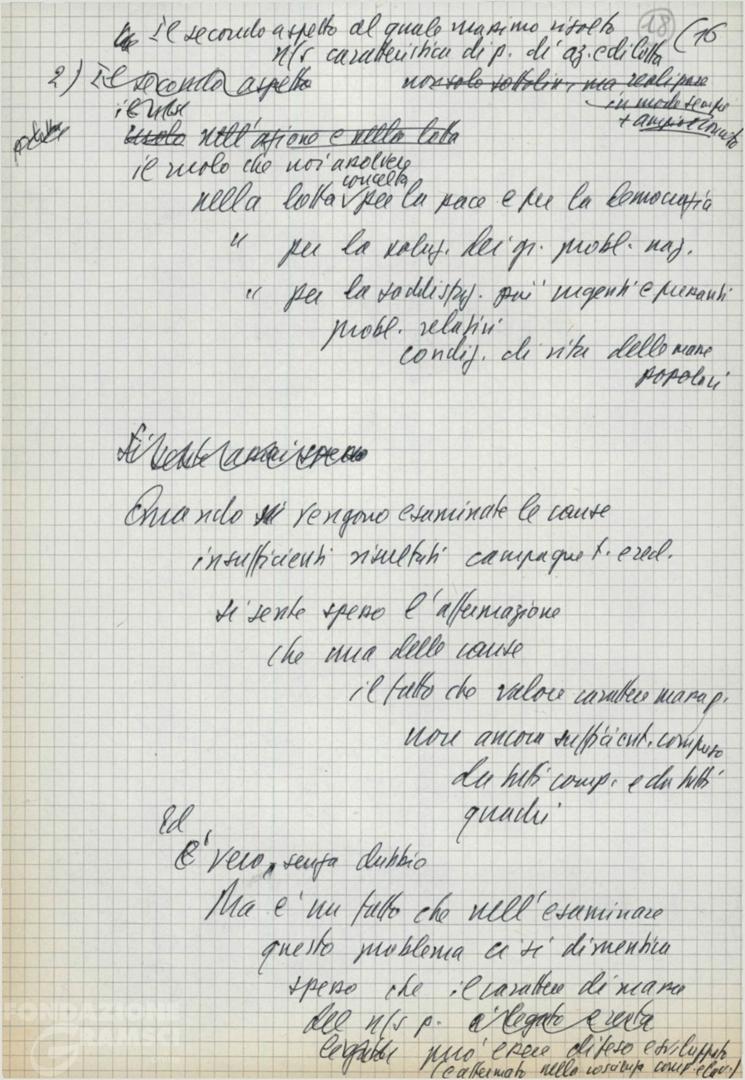 Il secondo aspetto al quale massimo risalto 18 (16
n/s caratteristica di p. di az. e di lotta
2) Il secondo aspetto non solo sottolin. ma realizzare
in modo sempre
+ ampio
nell'azione e nella lotta
il ruolo che noi assolvere
concreta
nella lotta per la pace e per la democrazia
" per la soluz. dei gr. probl. naz.
" per la soddisfaz. più urgenti e pressanti
probl. relativi
condiz. di vita delle masse
popolari
Si sente assai spesso
Quando si vengono esaminate le cause
insufficienti risultati campagne t. e recl.
si sente spesso l'affermazione
che una delle cause
il fatto che valore carattere massa p.
non ancora sufficient. compreso
da tutti comp. e da tutti
quadri
Ed
E' vero, senza dubbio
Ma è un fatto che nell'esaminare
questo problema ci si dimentica
spesso che il carattere di massa
del n/s p. è legato e resta
può essere difeso e sviluppato
(e affermato nella coscienza comp. e lav.)
FONDAZIONE
GRAMSCI